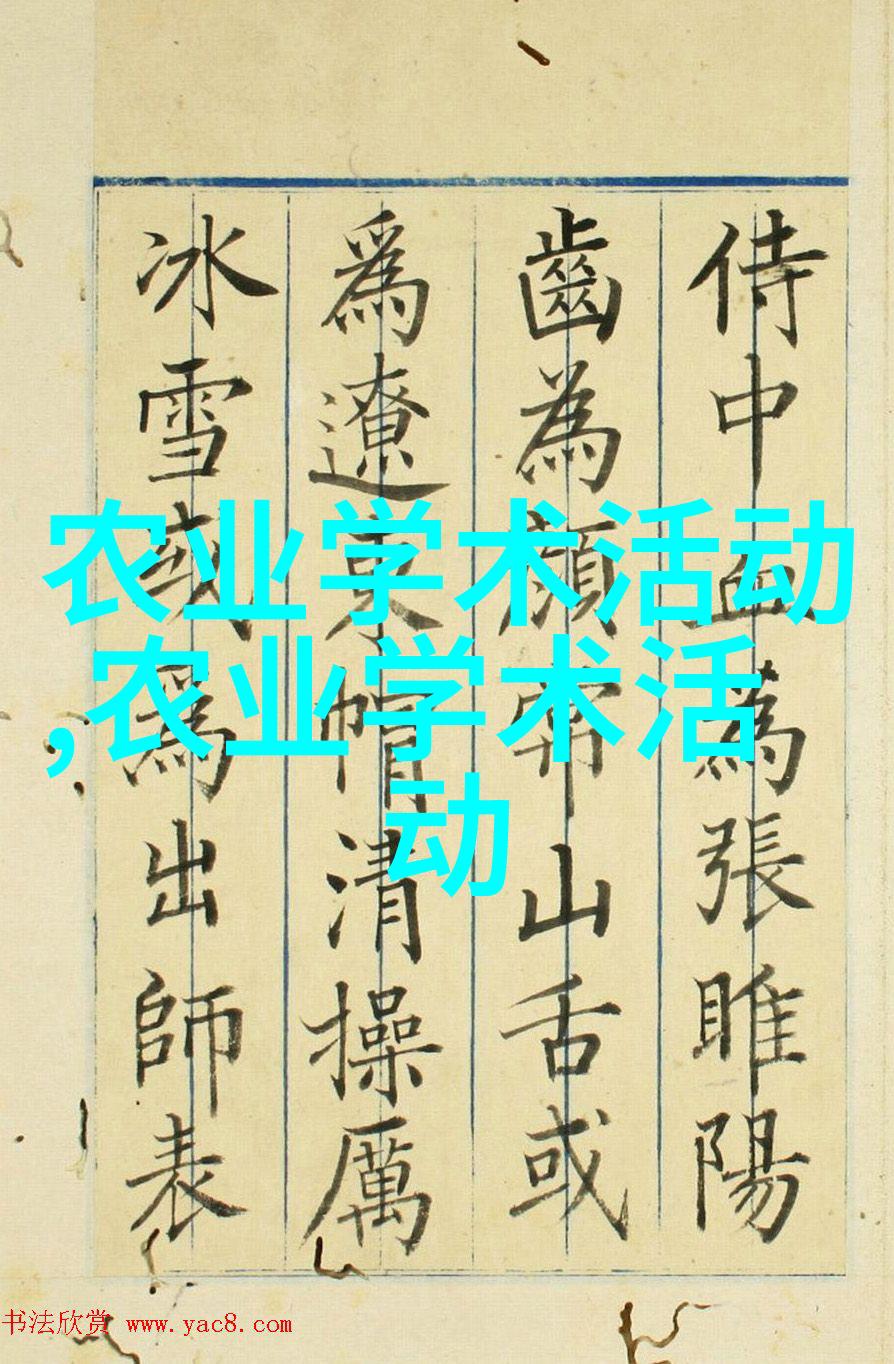 侍中血為張睢陽
齒為顔常山舌或
爲遼東帽清操厲
冰雪或爲出師表
农业学术活动
,农业学术活
动
书法欣赏 www.yac8.com